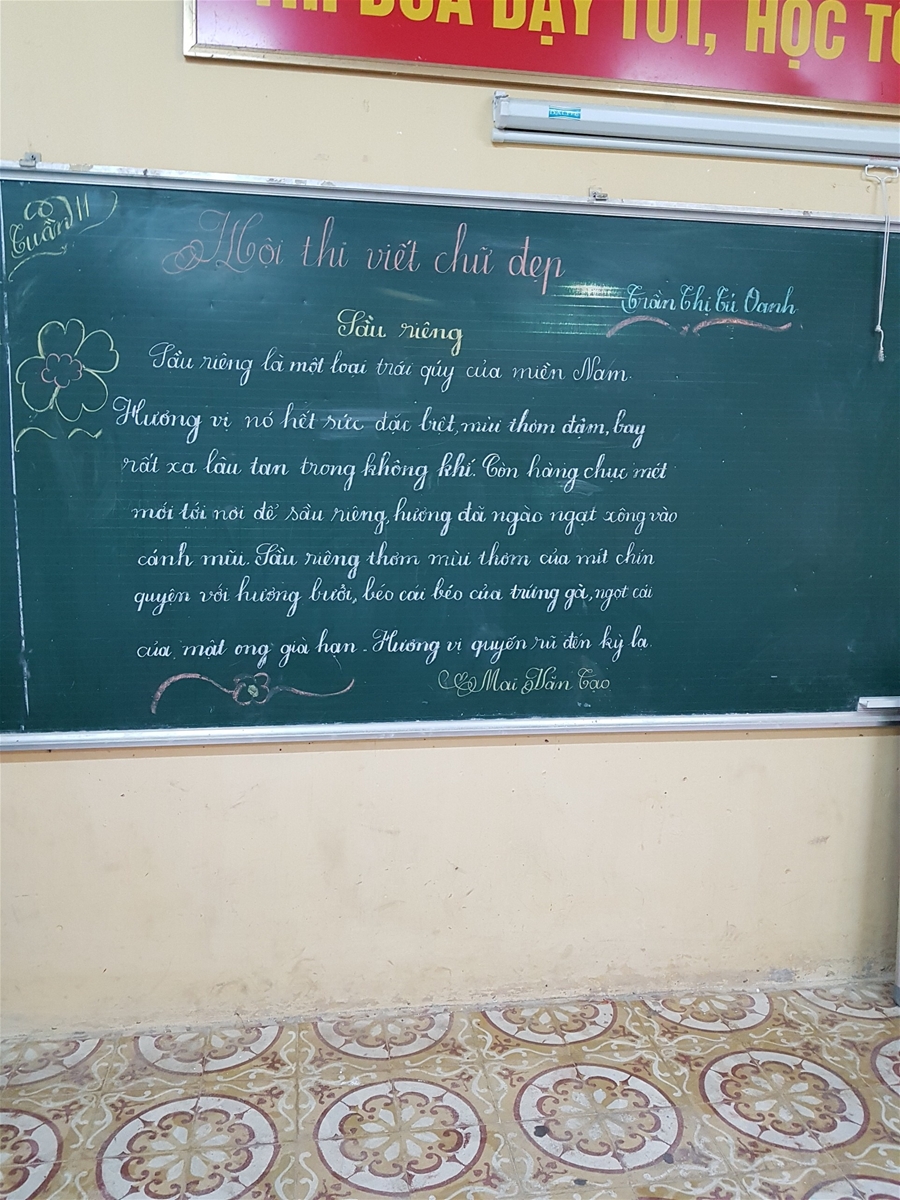 THI ĐUA DẠY TỐT, HỌC TỐ
Tuần 11
Hội thi viết chữ đẹp
Trần Thị Tú Oanh
Sầu riêng
Sầu riêng là một loại trái qúy của miền Nam.
Hương vị nó hết sức đặc biệt, mùi thơm đậm, bay
rất xa lâu tan trong không khí. Còn hàng chục mét
mới tới nơi để sầu riêng, hương đã ngào ngạt xông vào
cánh mũi. Sầu riêng thơm mùi thơm của mít chín
quyện với hương bưởi, béo cái béo của trứng gà, ngọt cái
của mật ong già hạn. Hương vị quyến rũ đến kỳ lạ.
Mai Văn Tạo